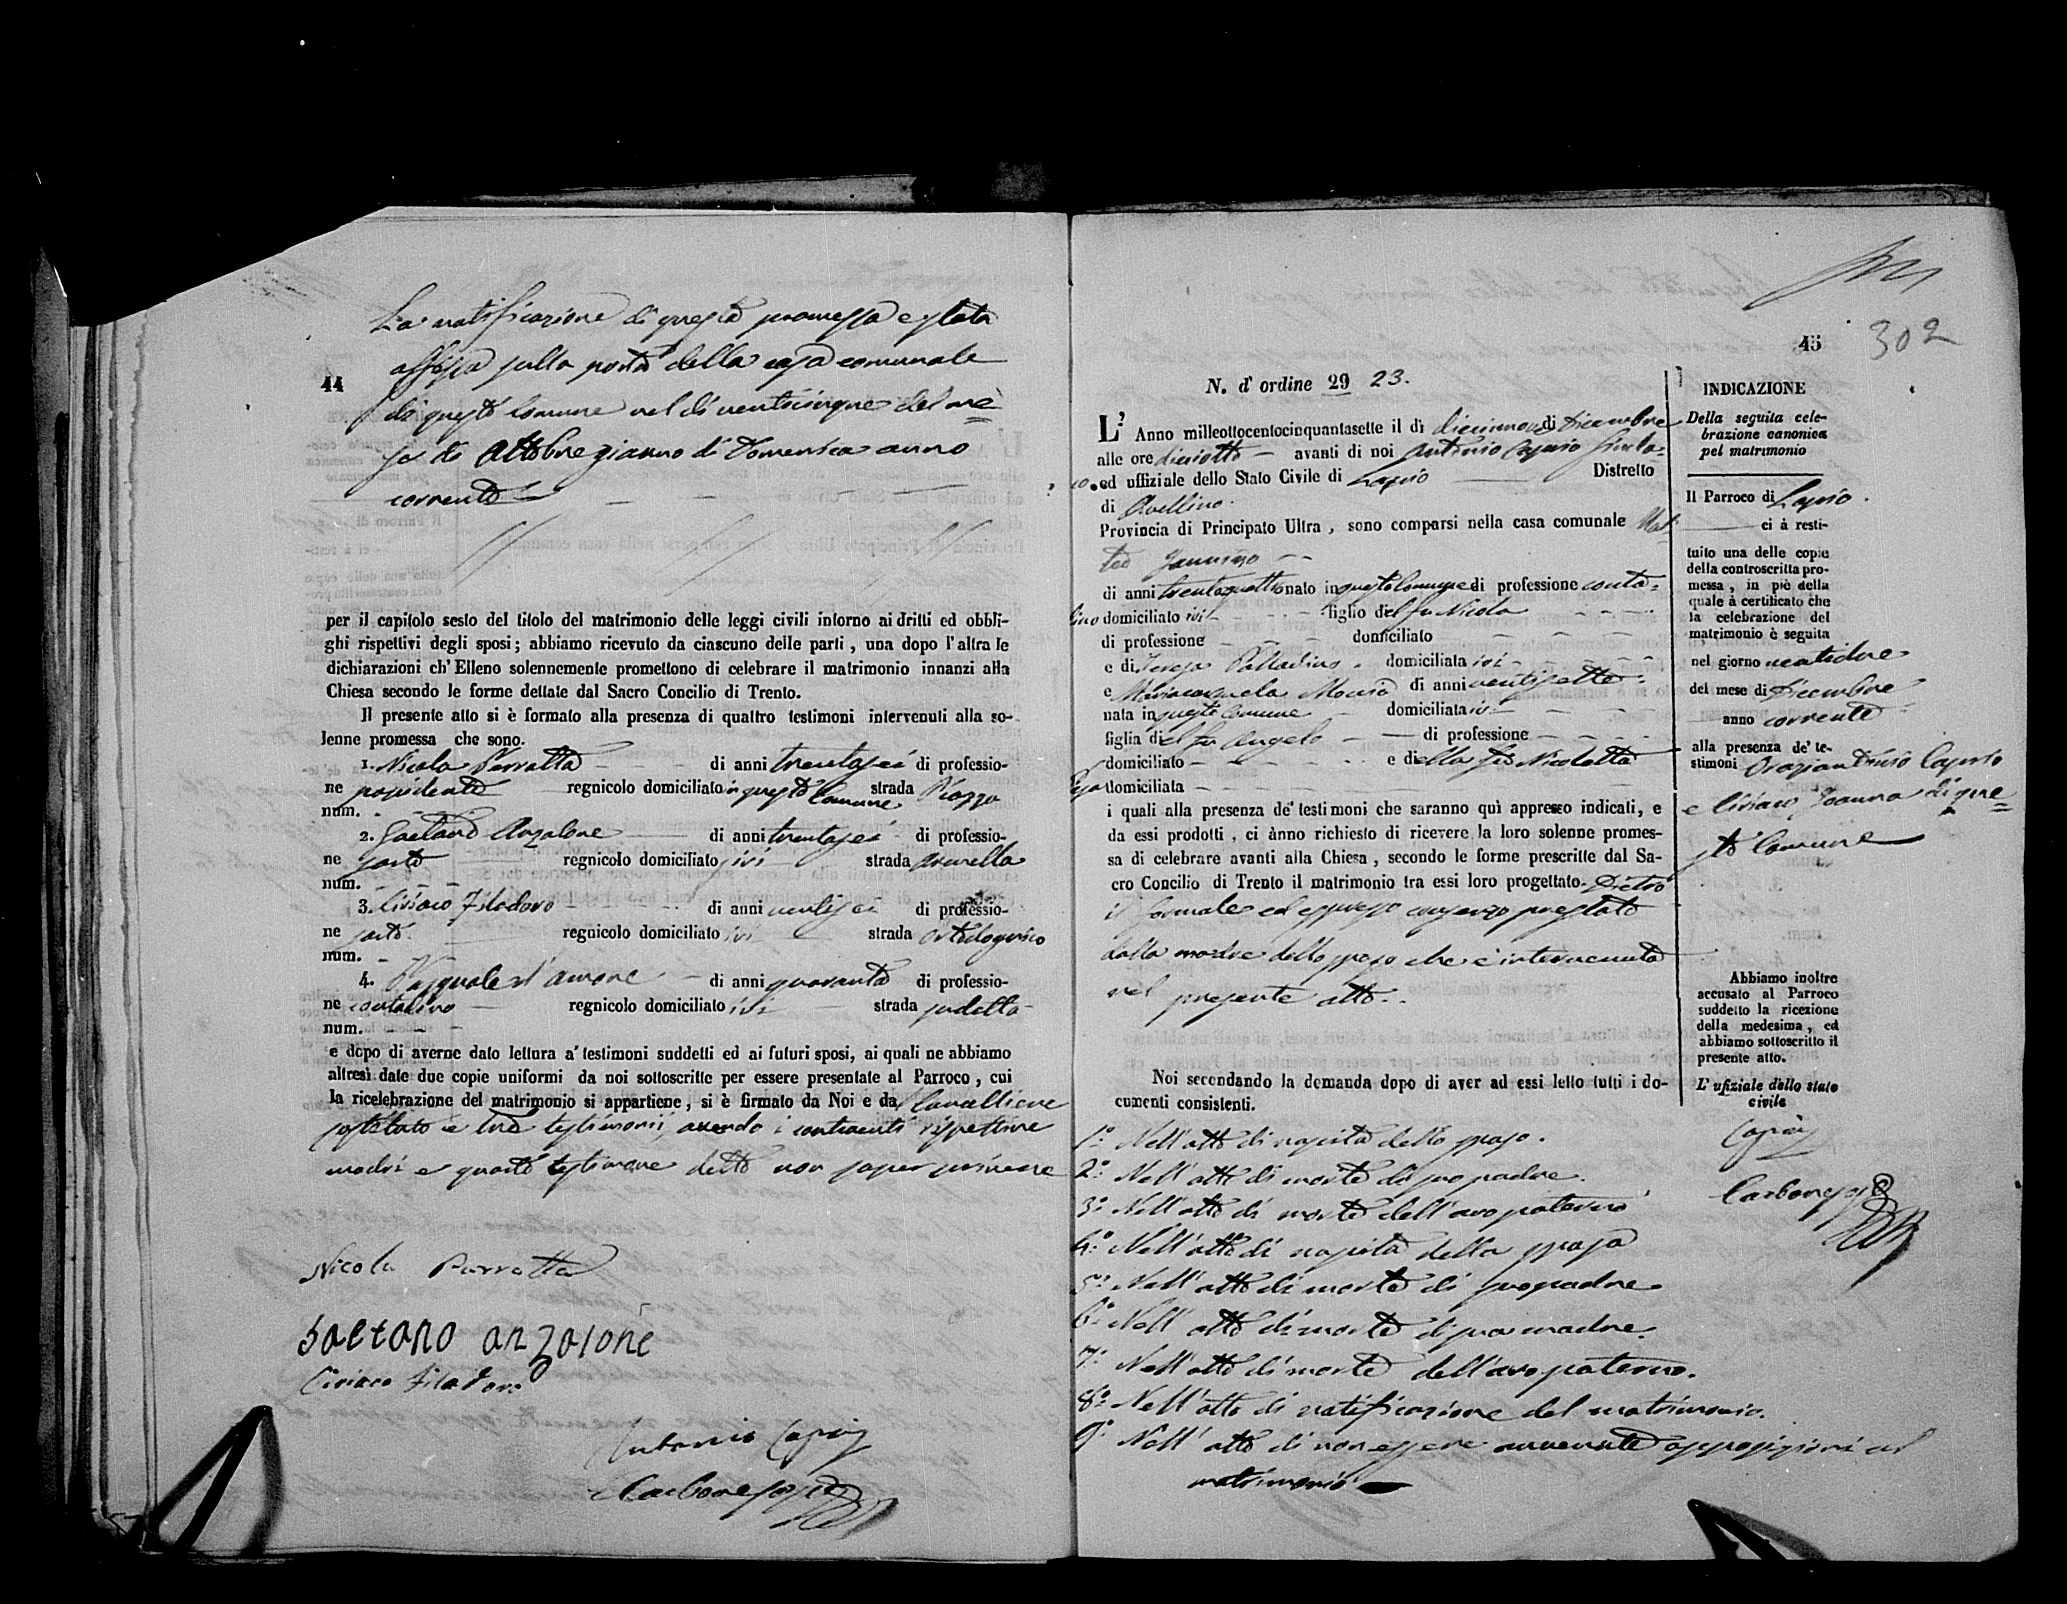 44
La notificazione di questa promessa e stata
affissa sulla porta della casa comunale
di questo Comune nel dì venticinque del me=
se di Ottobre giorno di Domenica anno
corrente
per il capitolo sesto del titolo del matrimonio delle leggi civili intorno ai dritti ed obbli-
ghi rispettivi degli sposi; abbiamo ricevuto da ciascuno delle parti, una dopo l'altra le
dichiarazioni ch'Elleno solennemente promettono di celebrare il matrimonio innanzi alla
Chiesa secondo le forme dettate dal Sacro Concilio di Trento.
Il presente atto si è formato alla presenza di quattro testimoni intervenuti alla so-
lenne promessa che sono.
1. Nicola Parratta di anni trentasei di professio-
ne possidente regnicolo domiciliato in questo Comune strada Piazza
num.
2. Gaetano Anzalone di anni trentasei di professio-
ne sarto regnicolo domiciliato ivi strada
num.
3. Ciriaco Filadoro di anni ventisei di professio-
ne sarto regnicolo domiciliato ivi strada
num.
4. Pasquale d'Amore di anni quaranta di professio-
ne contadino regnicolo domiciliato ivi strada sudetta
num.
e dopo di averne dato lettura a' testimoni suddetti ed ai futuri sposi, ai quali ne abbiamo
altresì date due copie uniformi da noi sottoscritte per essere presentate al Parroco, cui
la ricelebrazione del matrimonio si appartiene, si è firmato da Noi e da Cancelliere
sostituto e tre testimonii, avendo i contraenti rispettive
madri e quarto testimone detto non saper scrivere
Nicola Parratta
Gaetano anzalone
Ciriaco Filadoro
Antonio Caprio
Carbone
302
45
N. d' ordine 29 23.
L' Anno milleottocentocinquantasette il dì diecinnove di Dicembre
alle ore dieciotto avanti di noi Antonio Caprio Sinda=
co ed uffiziale dello Stato Civile di Lapio Distretto
di Avellino
Provincia di Principato Ultra, sono comparsi nella casa comunale Mat=
teo
di anni trentaquattro nato in questo Comune di professione conta=
dino domiciliato ivi figlio del fu Nicola
di professione domiciliato
e di Teresa Palladino domiciliata ivi
e Mariacarmela di anni ventisette
nata in questo Comune domiciliata ivi
figlia del fu Angelo di professione
domiciliato e della fu Nicoletta
domiciliata
i quali alla presenza de' testimoni che saranno quì appresso indicati, e
da essi prodotti, ci ànno richiesto di ricevere la loro solenne promes-
sa di celebrare avanti alla Chiesa, secondo le forme prescritte dal Sa-
cro Concilio di Trento il matrimonio tra essi loro progettato. Dietro
il formale ed espresso consenso prestato
dalla madre dello sposo che è intervenuta
nel presente atto.
Noi secondando la domanda dopo di aver ad essi letto tutti i do-
cumenti consistenti.
1º Nell'atto di nascita dello sposo.
2º Nell'atto di morte di suo padre.
3º Nell'atto di morte dell'avo paterno
4º Nell'atto di nascita della sposa
5º Nell'atto di morte di suo padre
6º Nell'atto di morte di sua madre.
7º Nell'atto di morte dell'avo paterno.
8º Nell'atto di notificazione del matrimonio.
9º Nell'atto di non essere avvenute opposizioni al
matrimonio
INDICAZIONE
Della seguita cele-
brazione canonica
pel matrimonio
Il Parroco di Lapio.
ci à resti-
tuito una delle copie
della controscritta pro-
messa, in piè della
quale à certificato che
la celebrazione del
matrimonio è seguita
nel giorno ventidue
del mese di Dicembre
anno corrente
alla presenza de' te-
stimoni Oraziantonio Caprio
e Ciriaco Joanna di que=
sto Comune
Abbiamo inoltre
accusato al Parroco
suddetto la ricezione
della medesima, ed
abbiamo sottoscritto il
presente atto.
L' ufiziale dello stato
civile
Caprio
Carbone